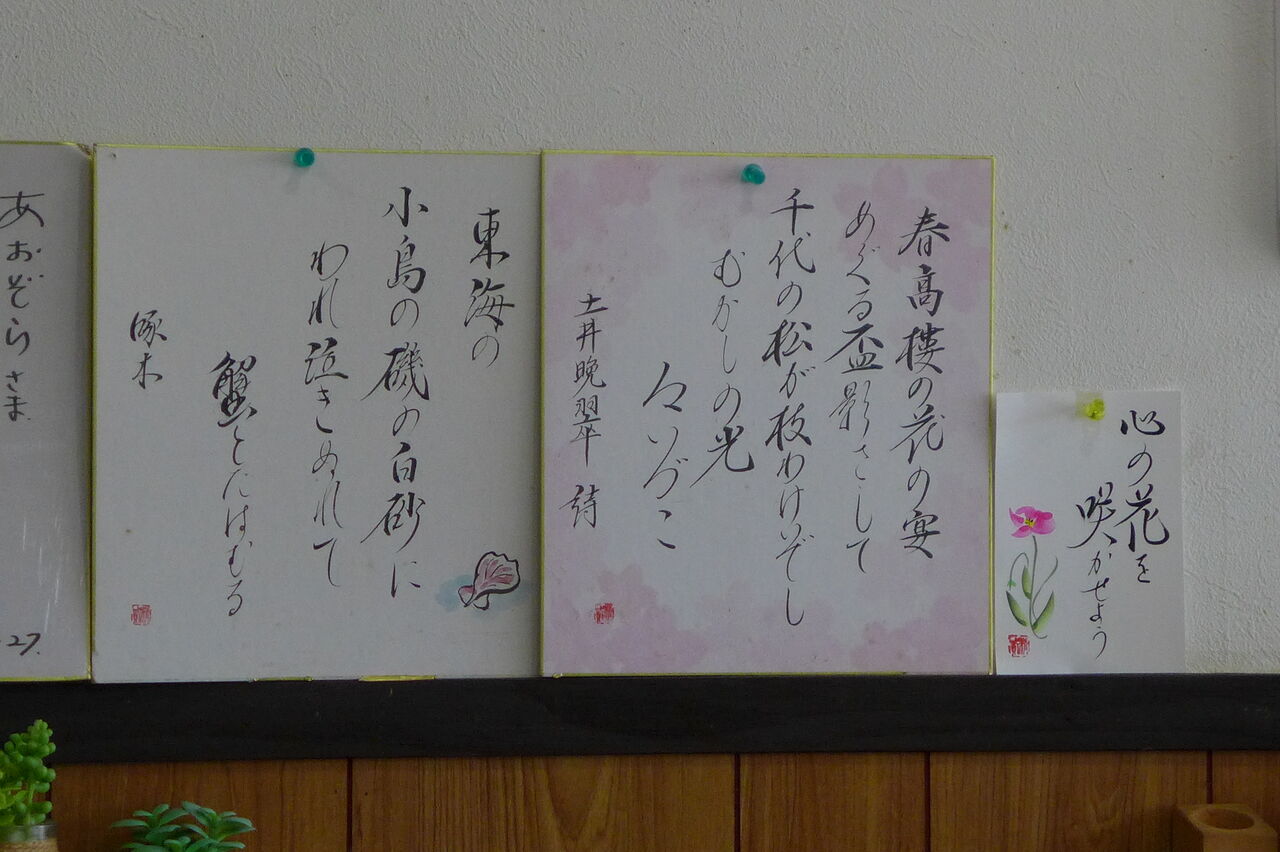 心の花を
咲かせよう
春高樓の花の宴
めぐる盃影さして
千代の松が枝わけいでし
むかしの光
今いづこ
土井晩翠 詩
東海の
小島の磯の白砂に
われ泣きぬれて
蟹とたはむる
啄木
あおぞらさま
27.